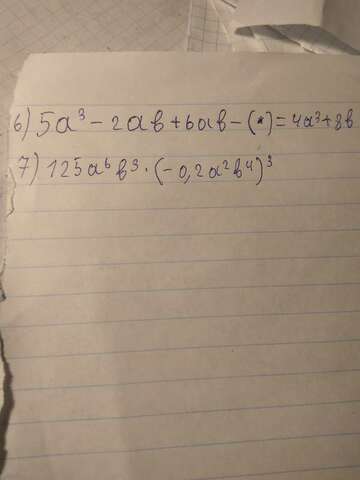 6) 5a³ - 2ab + 6ab - (*) = 4a³ + 8b
7) 125a⁶b³ · (-0,2a²b⁴)³